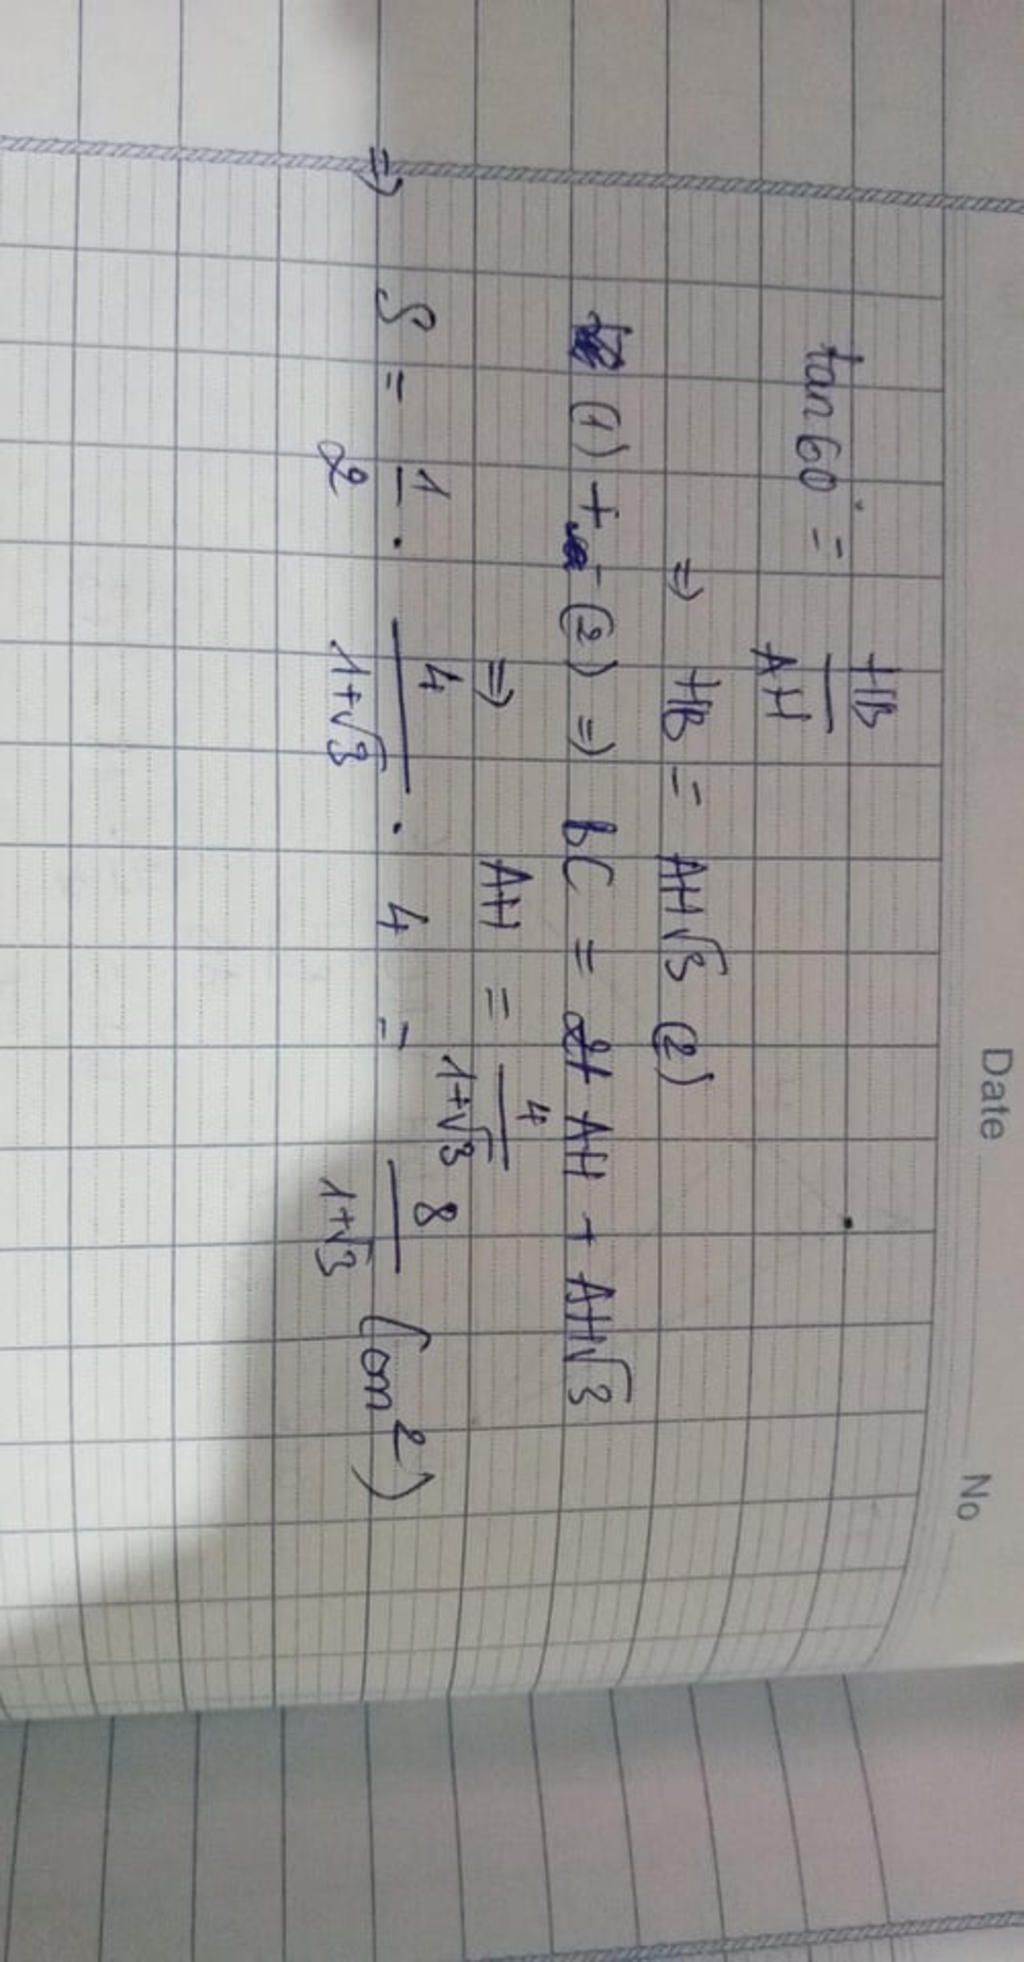 Date No
tan 60° = HB/AH
⇒ HB = AH√3 (2)
(1) + (2) ⇒ BC = AH + AH√3
⇒ AH = 4/(1+√3)
⇒ S = 1/2 . 4/(1+√3) . 4 = 8/(1+√3) (cm²)